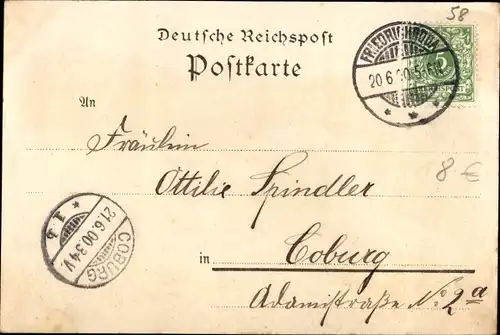 58
Deutsche Reichspost
Postkarte
FRIEDRICHRODA
20 6 00 5-6 N.
An
Fräulein
Ottilie Spindler
8 €
in Coburg
Adamistraße No. 2a
COBURG
21.6.00.3-4V